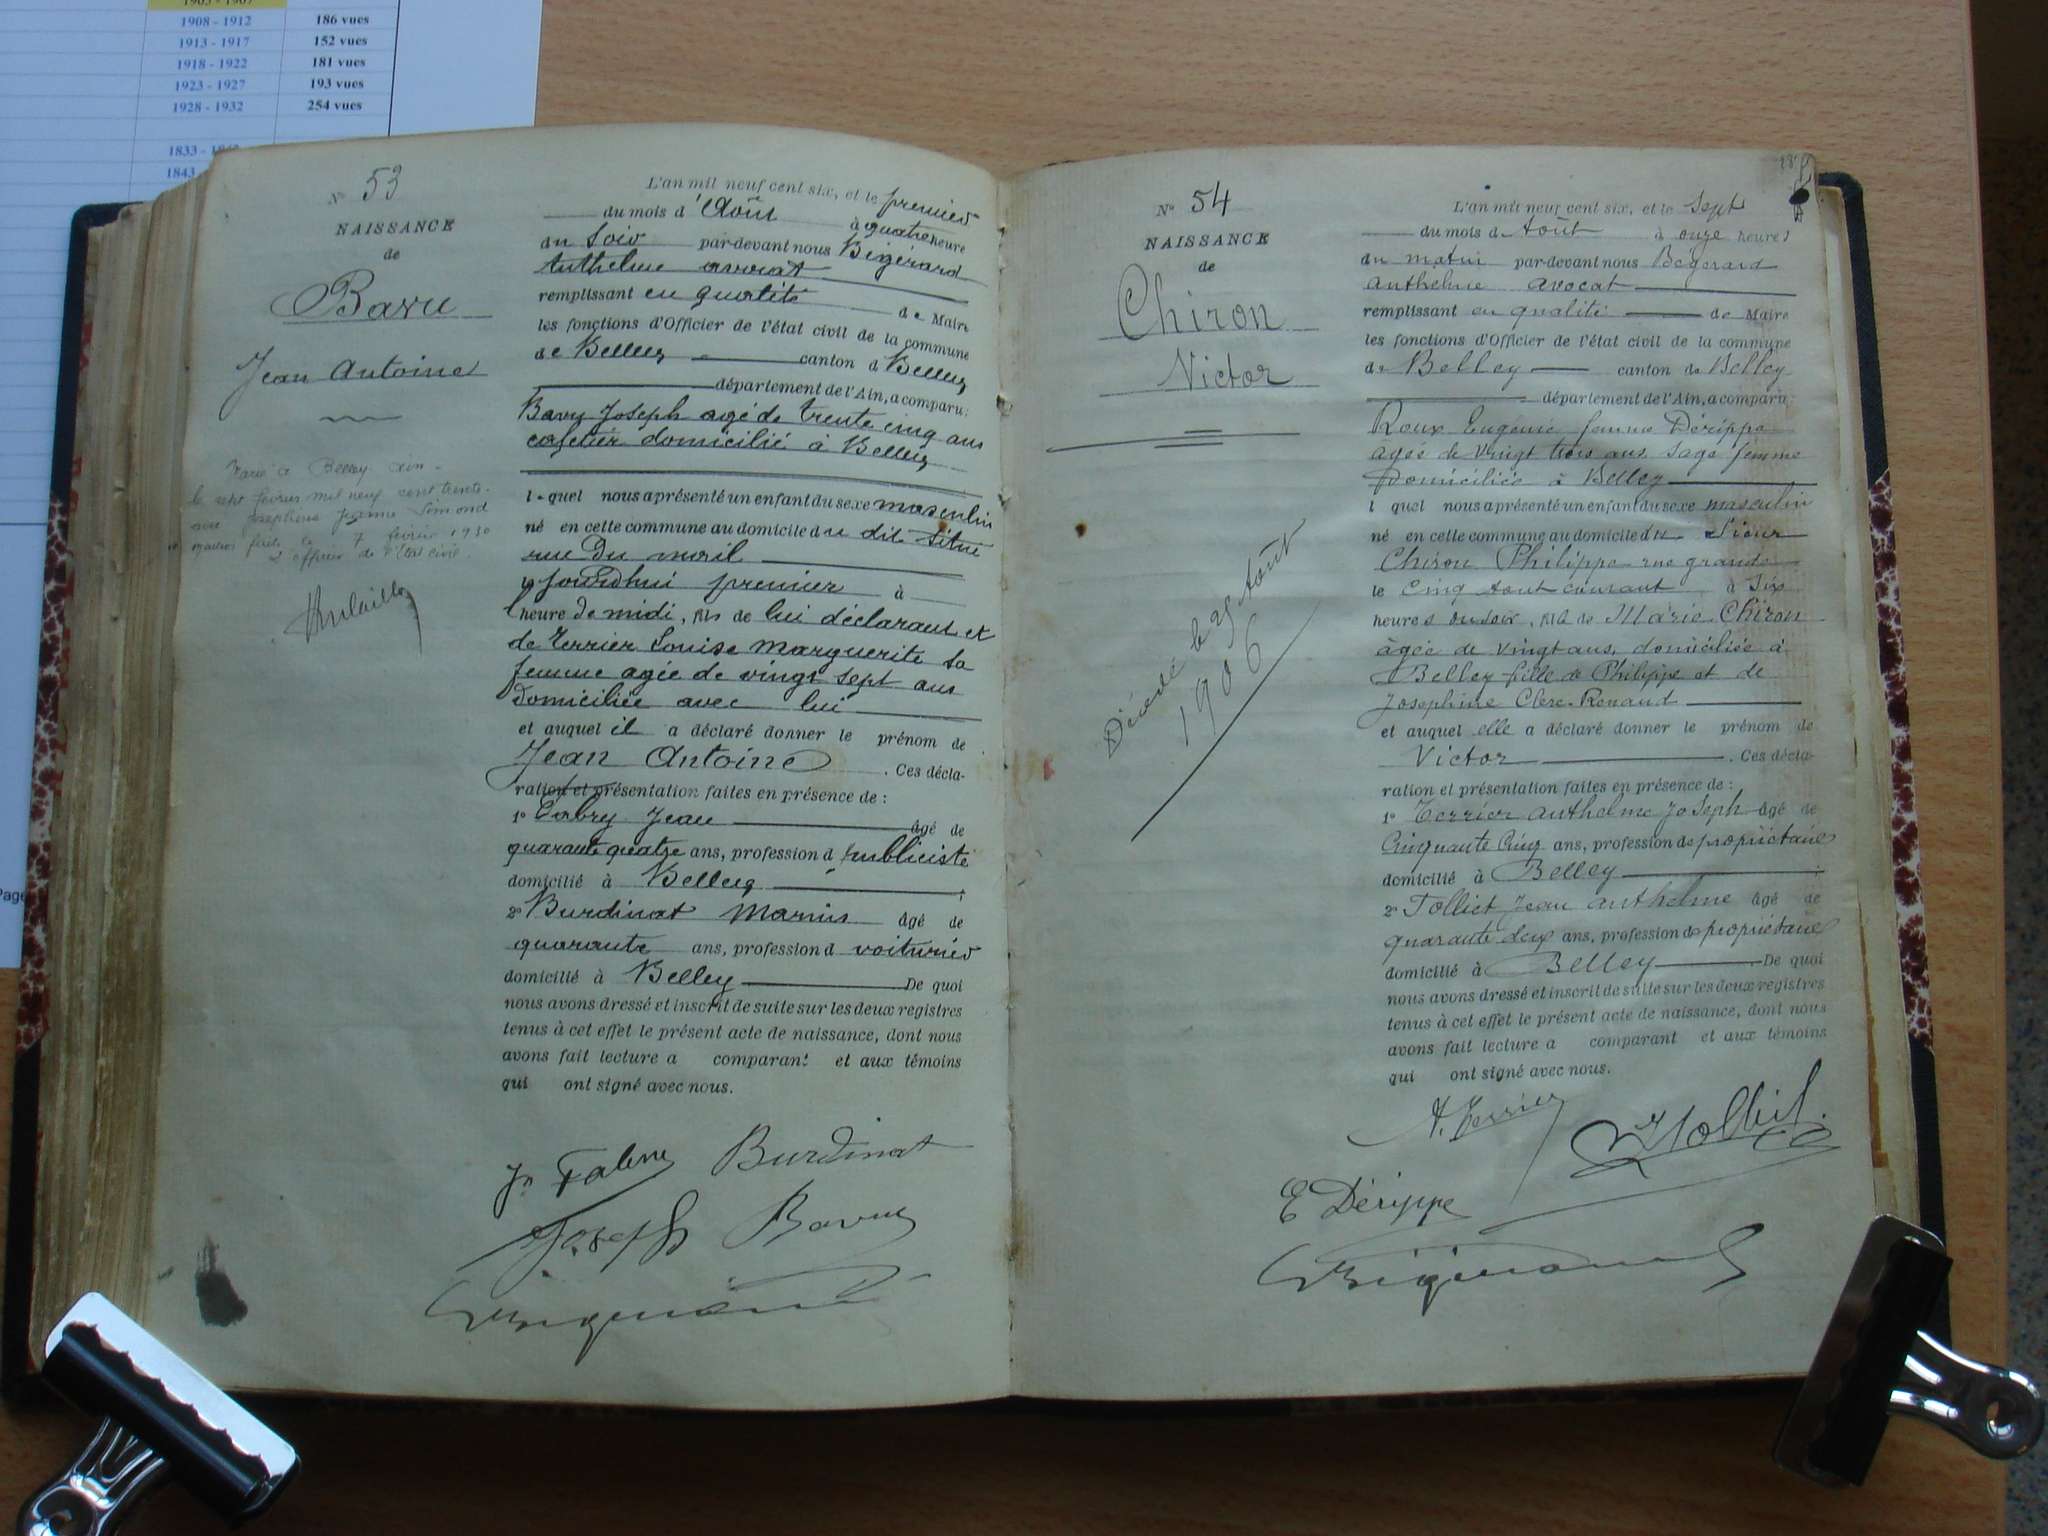 1908 - 1912 186 vues
1913 - 1917 152 vues
1918 - 1922 181 vues
1923 - 1927 193 vues
1928 - 1932 254 vues
1833 -
1843
Page
N° 53
NAISSANCE
de
Bavu
Jean Antoine
Marié à Belley Ain
le sept février mil neuf cent trente
avec Joséphine Jeanne Simond
7 février 1930
L'officier de l'Etat civil.
L'an mil neuf cent six, et le premier
du mois d'Août à quatre heure
du Soir par-devant nous Bégérard
Anthelme avocat
remplissant en qualité de Maire
les fonctions d'Officier de l'état civil de la commune
de Belley canton d Belley
département de l'Ain, a comparu:
Bavu Joseph agé de trente cinq ans
cafetier domicilié à Belley
lequel nous a présenté un enfant du sexe masculin
né en cette commune au domicile du dit situé
rue du mail
jourdhui premier à
heure de midi, fils de lui déclarant et
de Terrier Louise Marguerite sa
femme agée de vingt sept ans
domiciliée avec lui
et auquel il a déclaré donner le prénom de
Jean Antoine . Ces décla-
ration et présentation faites en présence de :
1° Jean âgé de
quarante quatre ans, profession d publiciste
domicilié à Belley ;
2° Burdinat Marius âgé de
quarante ans, profession d voiturier
domicilié à Belley De quoi
nous avons dressé et inscrit de suite sur les deux registres
tenus à cet effet le présent acte de naissance, dont nous
avons fait lecture a comparant et aux témoins
qui ont signé avec nous.
Jn Burdinat
Joseph Bavu
N° 54
NAISSANCE
de
Chiron
Victor
Décédé le 25 Août
1906
L'an mil neuf cent six, et le sept
du mois d Août à onze heures
du matin par-devant nous Bégérard
Anthelme avocat
remplissant en qualité de Maire
les fonctions d'Officier de l'état civil de la commune
de Belley canton de Belley
département de l'Ain, a comparu:
Roux Eugénie femme Dérippe
agée de vingt trois ans sage femme
domiciliée à Belley
l quel nous a présenté un enfant du sexe masculin
né en cette commune au domicile du Sieur
Chiron Philippe rue grande
le cinq Août courant à Six
heures du soir, fils de Marie Chiron
âgée de vingt ans, domiciliée à
Belley fille de Philippe et de
Josephine Clerc-Renaud
et auquel elle a déclaré donner le prénom de
Victor . Ces décla-
ration et présentation faites en présence de :
1° Terrier Anthelme Joseph âgé de
Cinquante Cinq ans, profession de propriétaire
domicilié à Belley ;
2° Tolliet Jean Anthelme âgé de
quarante deux ans, profession de propriétaire
domicilié à Belley De quoi
nous avons dressé et inscrit de suite sur les deux registres
tenus à cet effet le présent acte de naissance, dont nous
avons fait lecture a comparant et aux témoins
qui ont signé avec nous.
A. Terrier Tolliet
E Dérippe